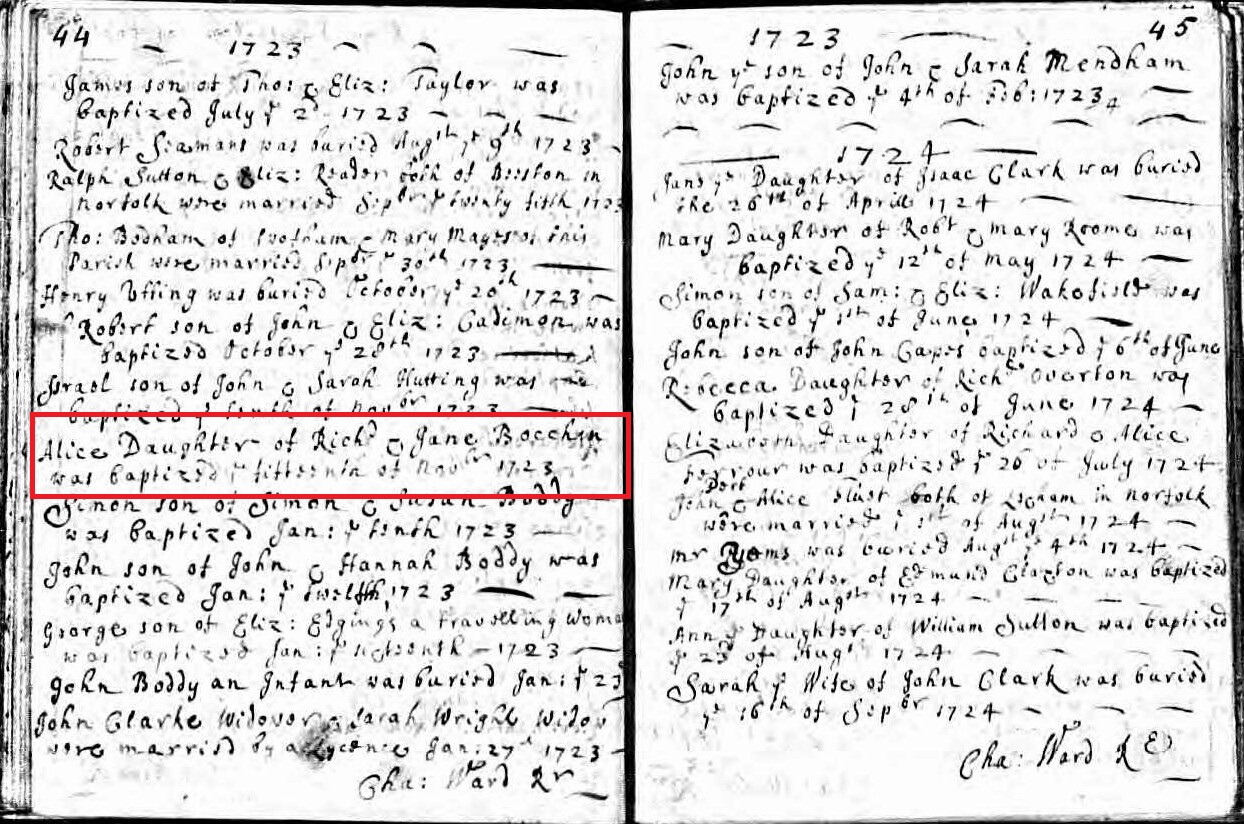 44
1723
James son of Tho: & Eliz: Taylor was
baptized July ye 2d 1723
Robert Seamans was buried Augst ye 9th 1723
Ralph Sutton & Eliz: Reader both of Beeston in
Norfolk were married Sepbr ye twenty fifth 1723
Tho: Bodham of & Mary Mayes of this
Parish were married Sepbr ye 30th 1723
Henry Utting was buried October ye 20th 1723
Robert son of John & Eliz: Cademon was
baptized October ye 28th 1723
Israel son of John & Sarah Nutting was
baptized ye tenth of Novbr 1723
Alice Daughter of Richd & Jane
was baptized ye fifteenth of Novbr 1723
Simon son of Simon & Susan Boddy
was baptized Jan: ye tenth 1723
John son of John & Hannah Boddy was
baptized Jan: ye twelfth 1723
George son of Eliz: Edgings a travelling Woman
was baptized Jan: ye 1723
John Boddy an Infant was buried Jan: ye 23
John Clarke Widower & Sarah Wright Widow
were married by a Lycence Jan: 27th 1723
Cha: Ward Rr
45
1723
John ye son of John & Sarah Mendham
was baptized ye 4th of Feb: 1723/4
1724
Jane ye Daughter of Isaac Clark was buried
the 26th of April 1724
Mary Daughter of Robt & Mary Roome was
baptized ye 12th of May 1724
Simon son of Sam: & Eliz: Wakefield was
baptized ye 1st of June 1724
John son of John Capes baptized ye 6th of June
Rebecca Daughter of Richd Overton was
baptized ye 28th of June 1724
Elizabeth Daughter of Richard & Alice
Ferrour was baptized ye 26 of July 1724
John Port & Alice both of in Norfolk
were married ye 1st of Augst 1724
Mr was buried Augst ye 4th 1724
Mary Daughter of Edmund Claxton was baptized
ye 17th of Augst 1724
Ann ye Daughter of William Sutton was baptized
ye 23d of Augst 1724
Sarah ye Wife of John Clark was buried
ye 16th of Sepbr 1724
Cha: Ward R